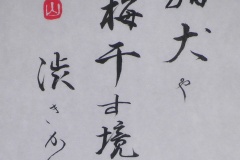 犬や
梅干す境
渋さ
山